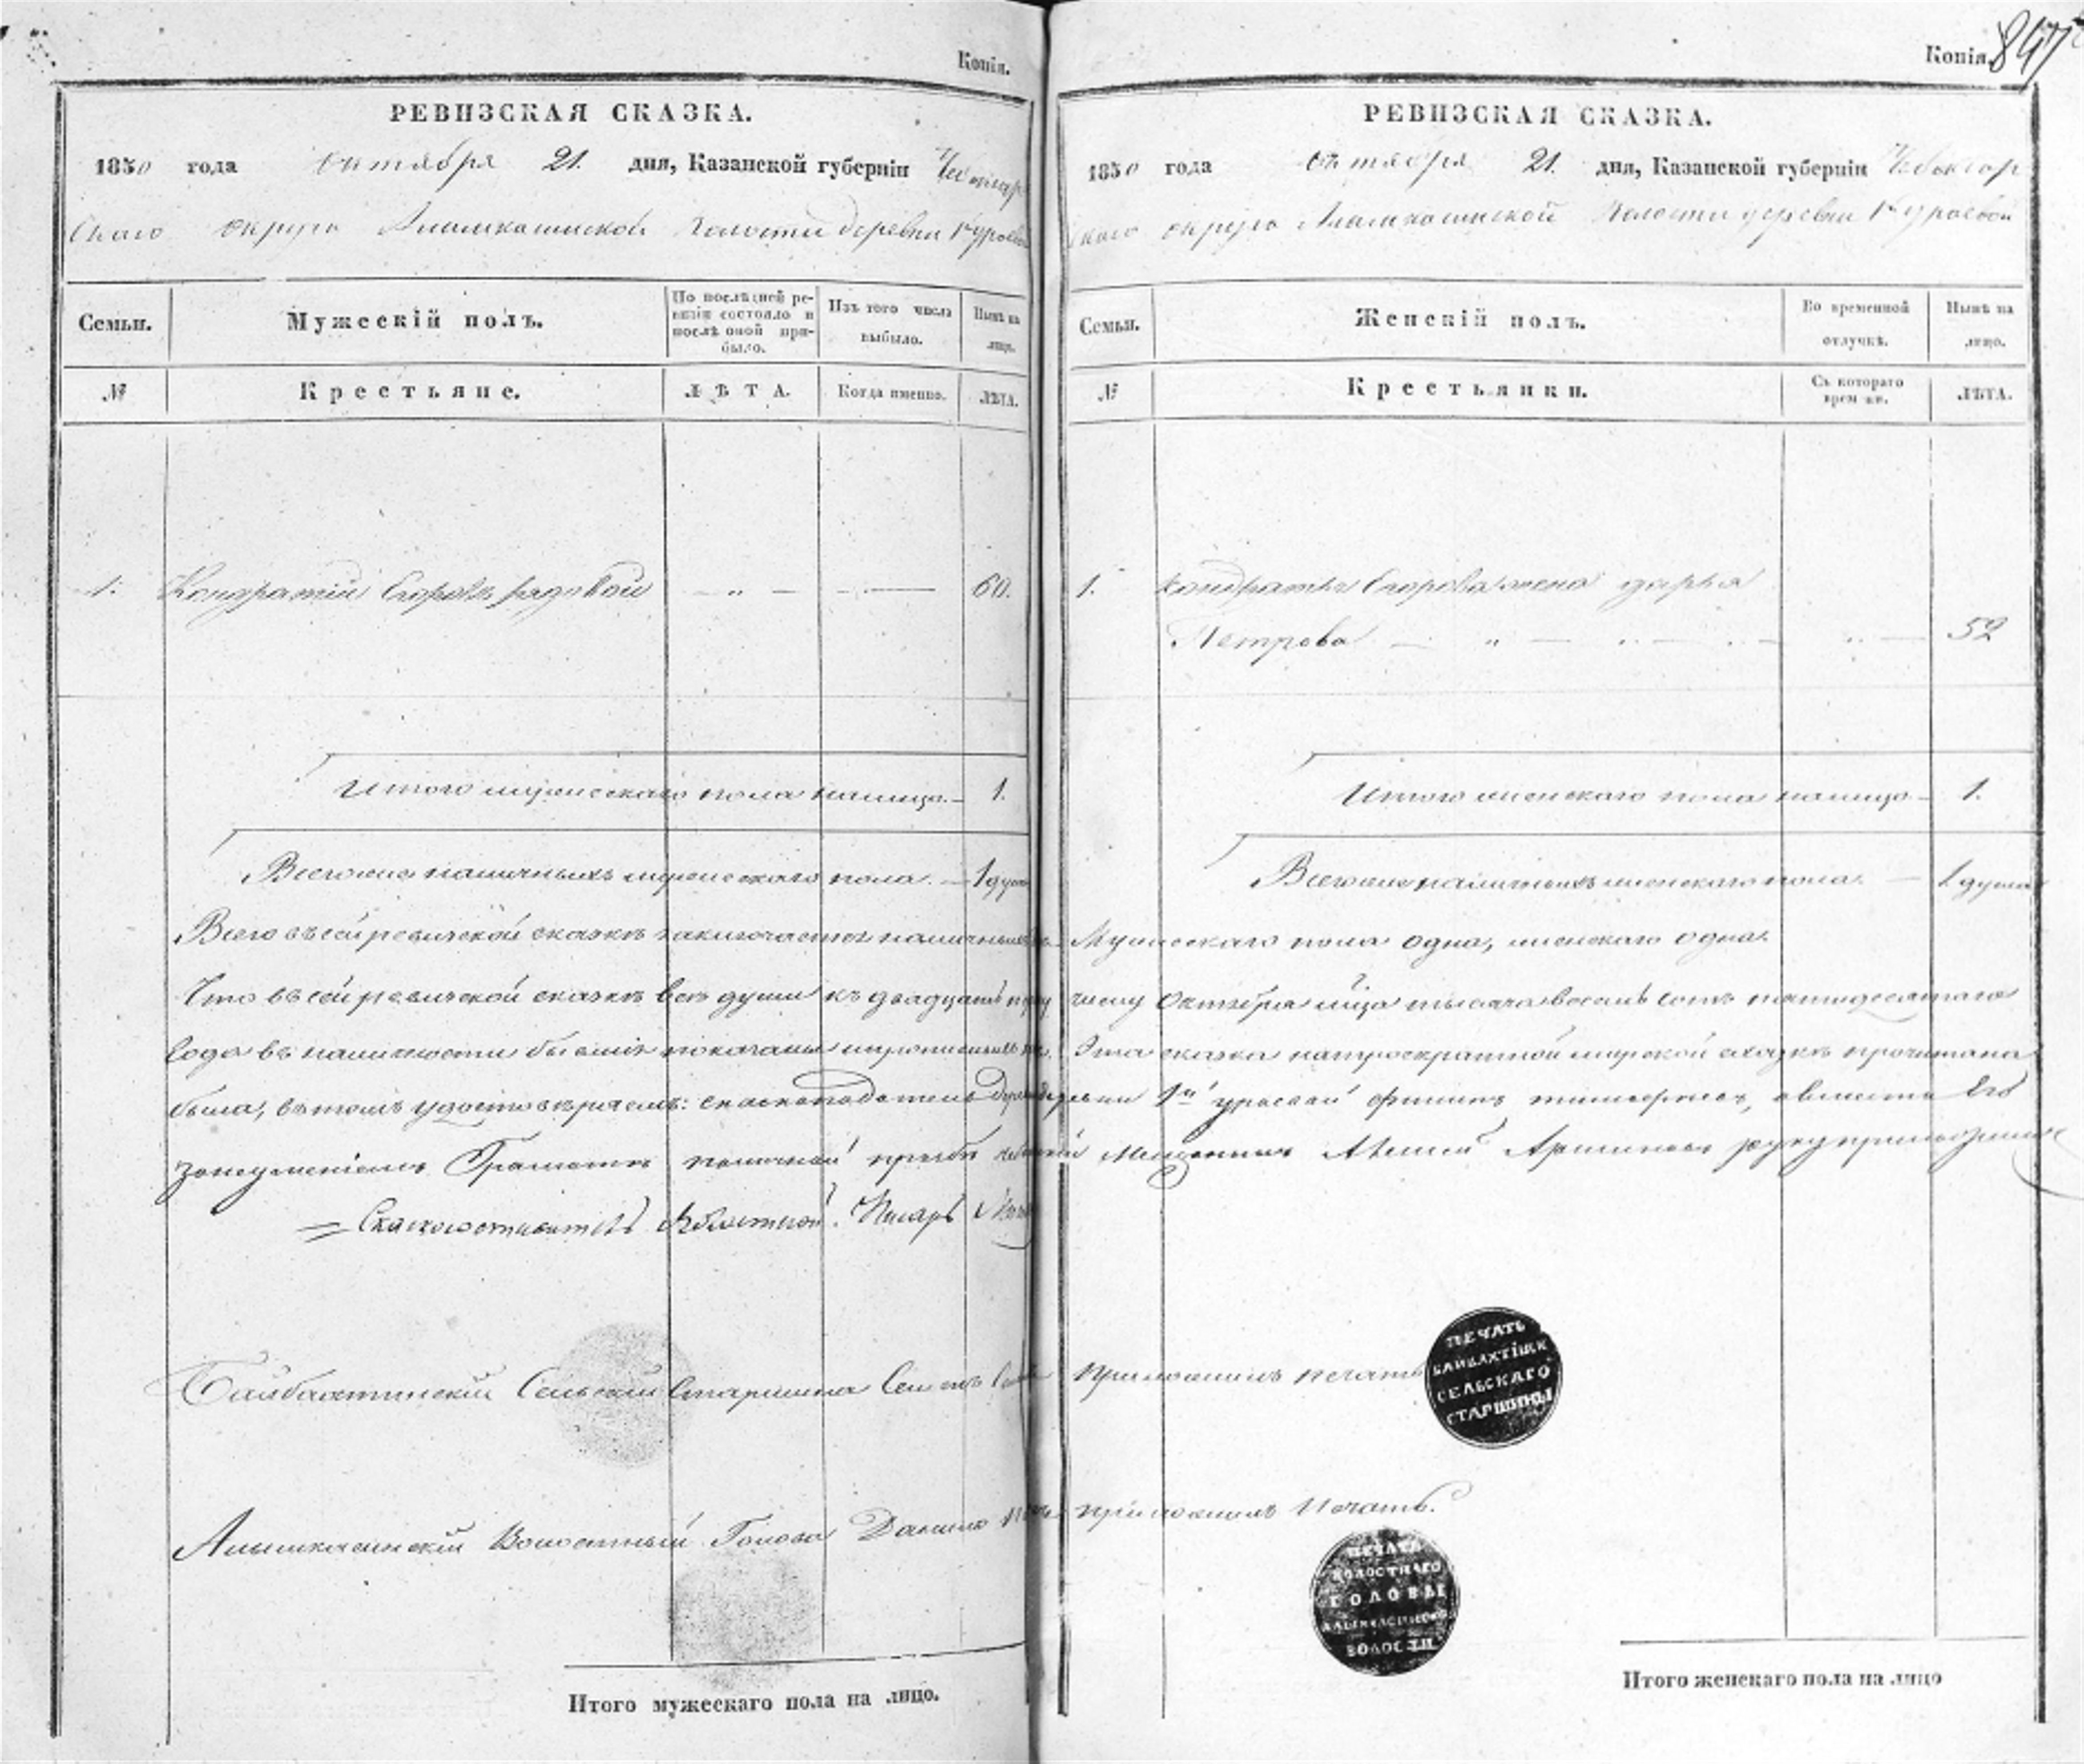 Копія.
РЕВИЗСКАЯ СКАЗКА.
1850 года октября 21. дня, Казанской губерніи Чебоксар
скаго округа Алымкасинской волости деревни Кураевой
Семьи.
Мужескій полъ.
По послѣдней ре-
визіи состояло и
послѣ оной при-
было.
Изъ того числа
выбыло.
Нынѣ на
лицо.
№
Крестьяне.
ЛѢТА.
Когда именно.
ЛѢТА.
1. Кондратій Егоровъ рядовой — „ — — 60.
Итого мужескаго пола налицо. — 1.
Всего же наличныхъ мужескаго пола. — 1 душа
Всего въ сей ревизской сказкѣ заключается наличныхъ
Что въ сей ревизской сказкѣ всѣ души къ двадцать
года въ наличности бывшія показаны
была, въ томъ удостовѣряемъ: сказкоподатель
Грамотѣ
Волостной Писарь
Байбахтинскій Сельскій Старшина Семенъ
Алымкасинскій Волостный Голова Данило
Итого мужескаго пола на лицо.
Копія. 847
РЕВИЗСКАЯ СКАЗКА.
1850 года октября 21. дня, Казанской губерніи Чебоксар
скаго округа Алымкасинской волости деревни Кураевой
Семьи.
Женскій полъ.
Во временной
отлучкѣ.
Нынѣ на
лицо.
№
Крестьянки.
Съ котораго
времени.
ЛѢТА.
1. Кондратья Егорова жена Дарья
Петрова — „ — „ — „ — „ — 52
Итого женскаго пола налицо — 1.
Всего же наличныхъ женскаго пола. — 1 душа
Мужескаго пола одна, женскаго одна.
числу Октября мѣсяца тысяча восемь сотъ пятидесятаго
Эта сказка на троекратной мірской сходкѣ прочитана
Кураевой вмѣсто его
руку приложилъ
приложилъ печать
ПЕЧАТЬ
БАЙБАХТИНСК
СЕЛЬСКАГО
СТАРШИНЫ
приложилъ печать.
ПЕЧАТЬ
ВОЛОСТНАГО
ГОЛОВЫ
АЛЫМКАСИНСКОЙ
ВОЛОСТИ
Итого женскаго пола на лицо